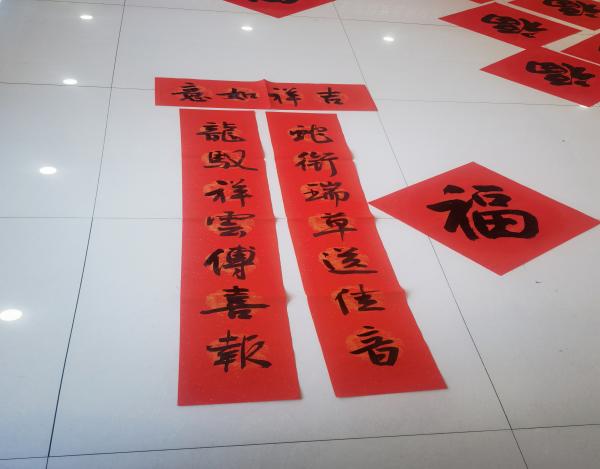 吉祥如意
蛇銜瑞草送佳音
龍馭祥雲傳喜報
福
福
福
福